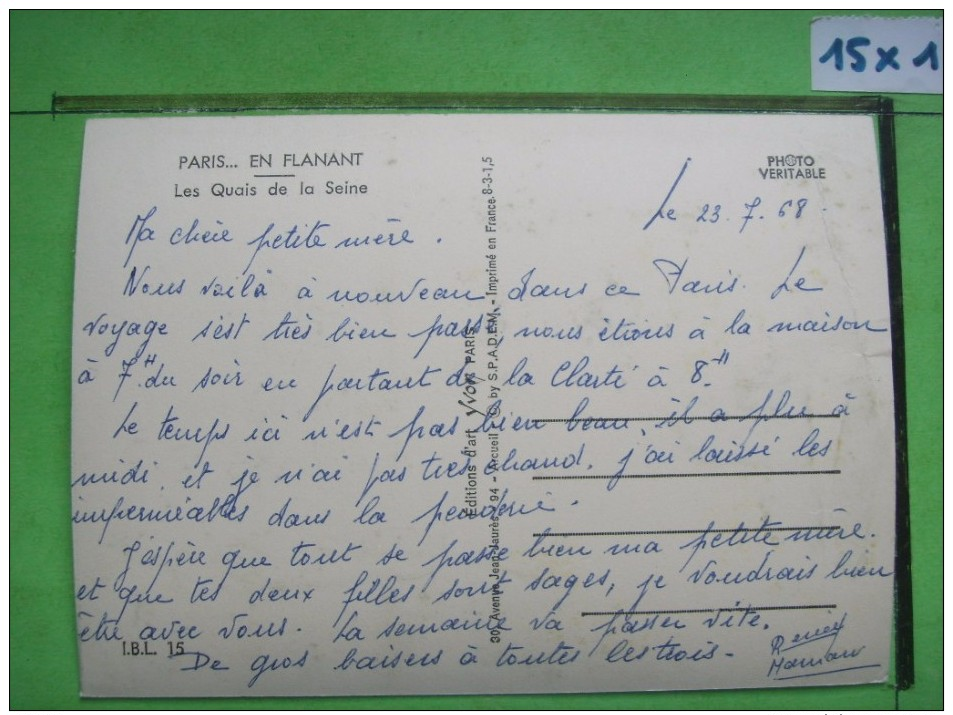 15 x 1
PARIS... EN FLANANT
Les Quais de la Seine
PHOTO
VERITABLE
Le 23.7.68.
Ma chère petite mère.
Nous voilà à nouveau dans ce Paris. Le
voyage s'est très bien passé, nous étions à la maison
à 7H du soir en partant de la Clarté à 8H.
Le temps ici n'est pas bien beau, il a plu à
midi, et je n'ai pas très chaud, j'ai laissé les
imperméables dans la penderie.
J'espère que tout se passe bien ma petite mère.
et que tes deux filles sont sages, je voudrais bien
être avec vous. La semaine va passer vite.
De gros baisers à toutes les trois-
Maman
I.B.L. 15
Editions d'art Yvon PARIS
30, Avenue Jean-Jaurès - 94 - Arcueil © by S.P.A.D.E.M. - Imprimé en France-8-3-1,5